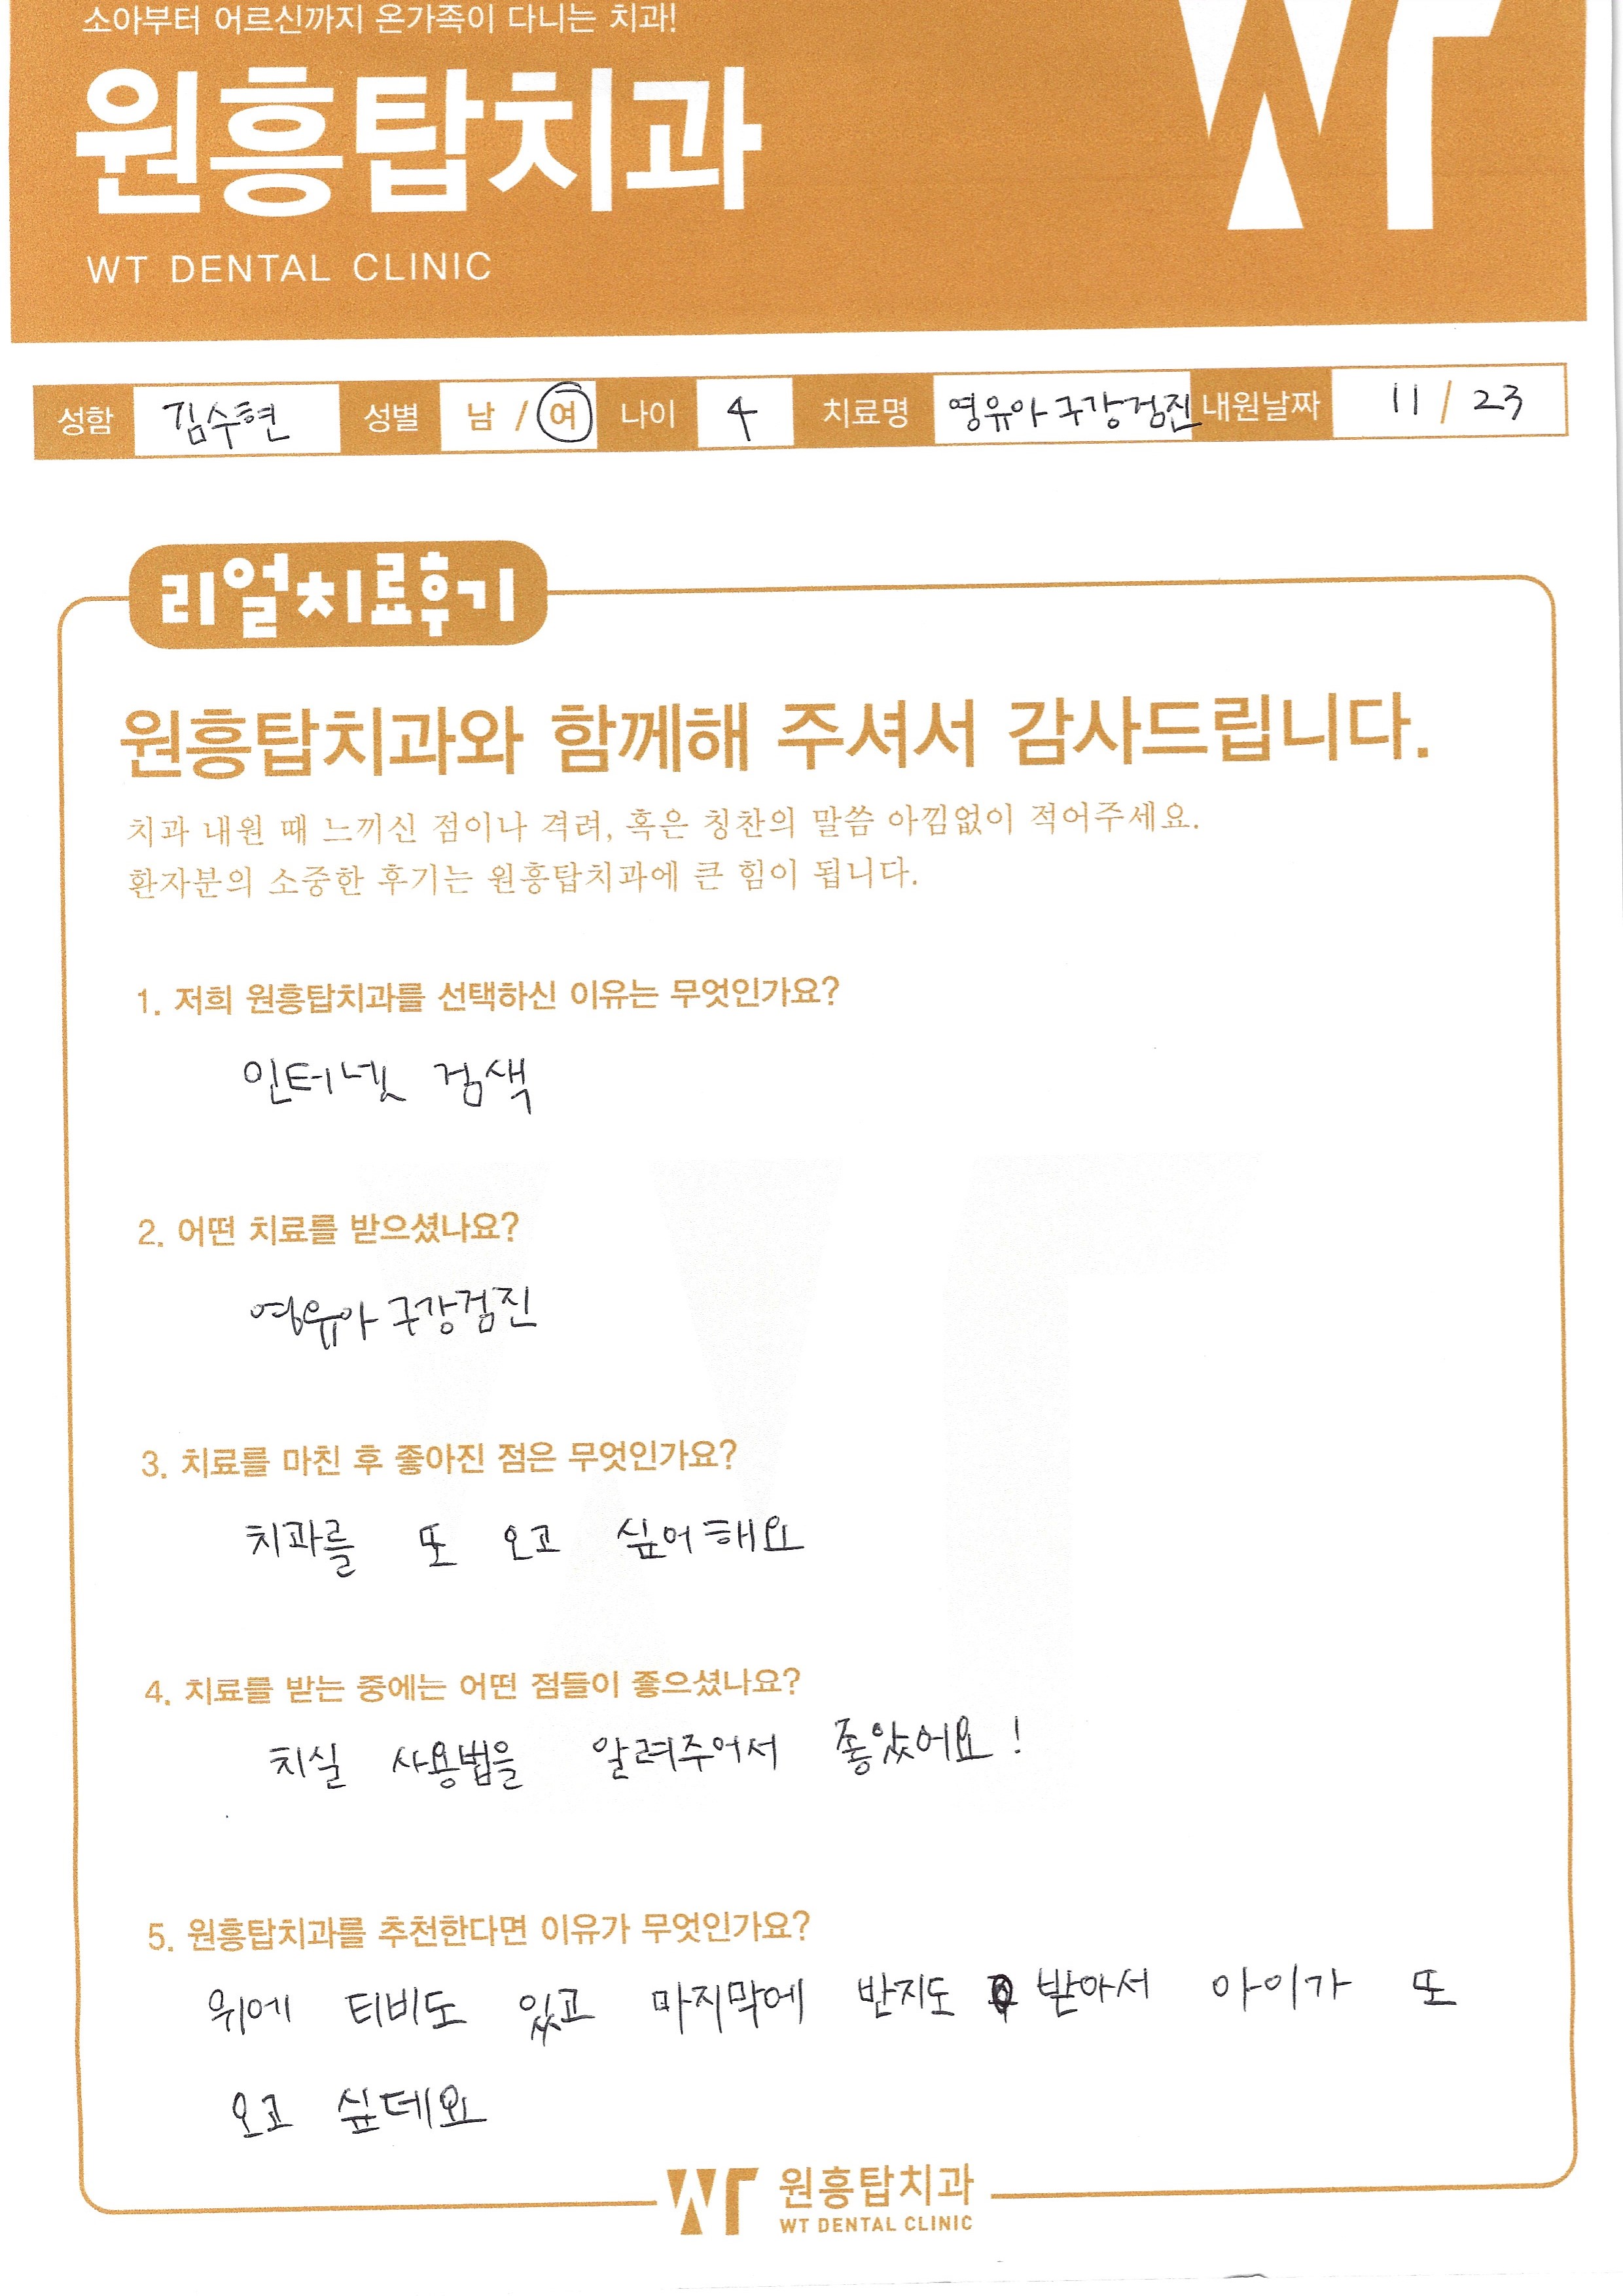 소아부터 어르신까지 온가족이 다니는 치과!
원흥탑치과
WT
WT DENTAL CLINIC
성함 김수현 성별 남 / 여 나이 4 치료명 영유아 구강검진 내원날짜 11 / 23
리얼치료후기
원흥탑치과와 함께해 주셔서 감사드립니다.
치과 내원 때 느끼신 점이나 격려, 혹은 칭찬의 말씀 아낌없이 적어주세요.
환자분의 소중한 후기는 원흥탑치과에 큰 힘이 됩니다.
1. 저희 원흥탑치과를 선택하신 이유는 무엇인가요?
인터넷 검색
2. 어떤 치료를 받으셨나요?
영유아 구강검진
3. 치료를 마친 후 좋아진 점은 무엇인가요?
치과를 또 오고 싶어해요
4. 치료를 받는 중에는 어떤 점들이 좋으셨나요?
치실 사용법을 알려주어서 좋았어요!
5. 원흥탑치과를 추천한다면 이유가 무엇인가요?
위에 티비도 있고 마지막에 반지도 받아서 아이가 또
오고 싶데요
WT 원흥탑치과
WT DENTAL CLINIC